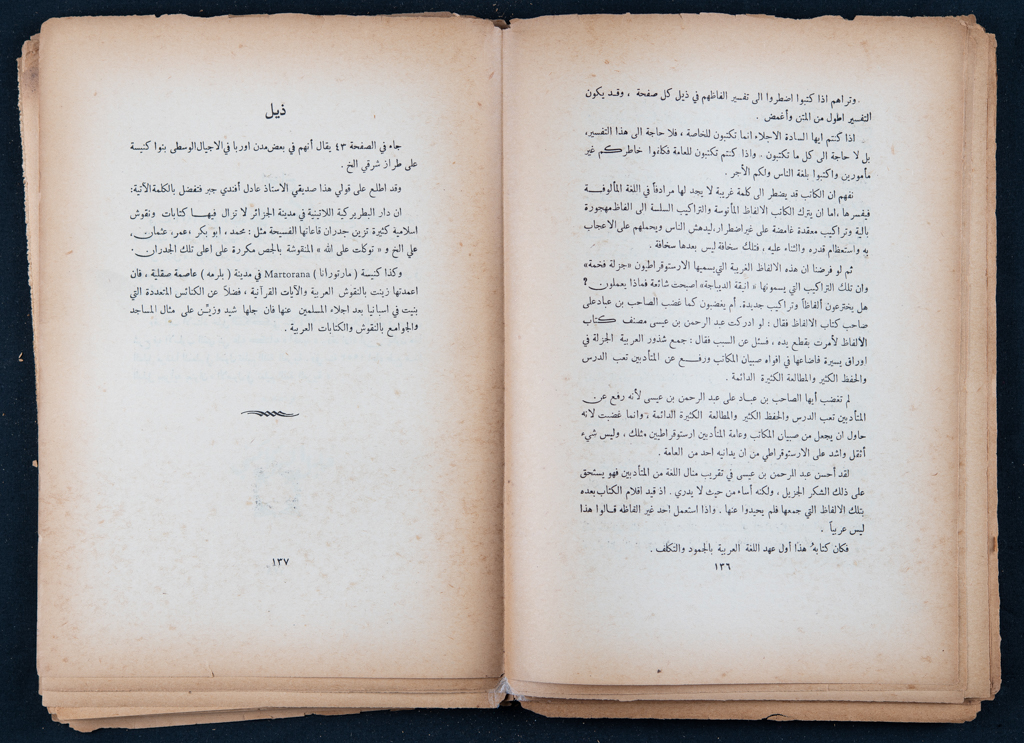 وتراهم اذا كتبوا اضطروا الى تفسير الفاظهم في ذيل كل صفحة ، وقد يكون
التفسير اطول من المتن وأغمض .
اذا كنتم ايها السادة الاجلاء انما تكتبون للخاصة ، فلا حاجة الى هذا التفسير،
بل لا حاجة الى كل ما تكتبون . واذا كنتم تكتبون للعامة فكلفوا خاطركم غير
مأمورين واكتبوا بلغة الناس ولكم الأجر .
نفهم ان الكاتب قد يضطر الى كلمة غريبة لا يجد لها مرادفاً في اللغة المألوفة
فيفسرها ،اما ان يترك الكاتب الالفاظ المأنوسة والتراكيب السلسة الى الفاظ مهجورة
بالية وتراكيب معقدة غامضة على غير اضطرار،ليدهش الناس ويحملهم على الاعجاب
به واستعظام قدره والثناء عليه ، فتلك سخافة ليس بعدها سخافة .
ثم لو فرضنا ان هذه الالفاظ الغريبة التي يسميها الارستوقراطيون «جزلة فخمة»
وان تلك التراكيب التي يسمونها « انيقة الديباجة» اصبحت شائعة فماذا يعملون ؟
هل يخترعون ألفاظاً وتراكيب جديدة. أم يغضبون كما غضب الصاحب بن عباد على
صاحب كتاب الالفاظ فقال : لو ادركت عبد الرحمن بن عيسى مصنف كتاب
الالفاظ لأمرت بقطع يده ، فسئل عن السبب فقال : جمع شذور العربية الجزلة في
اوراق يسيرة فاضاعها في افواه صبيان المكاتب ورفع عن المتأدبين تعب الدرس
والحفظ الكثير والمطالعة الكثيرة الدائمة .
لم تغضب أيها الصاحب بن عباد على عبد الرحمن بن عيسى لأنه رفع عن
المتأدبين تعب الدرس والحفظ الكثير والمطالعة الكثيرة الدائمة ، وانما غضبت لانه
حاول ان يجعل من صبيان المكاتب وعامة المتأدبين ارستوقراطيين مثلك ، وليس شيء
أثقل واشد على الارستوقراطي من ان يدانيه احد من العامة .
لقد أحسن عبد الرحمن بن عيسى في تقريب منال اللغة من المتأدبين فهو يستحق
على ذلك الشكر الجزيل ، ولكنه أساء من حيث لا يدري . اذ قيد اقلام الكتاب بعده
بتلك الالفاظ التي جمعها فلم يحيدوا عنها . واذا استعمل احد غير الفاظه قالوا هذا
ليس عربياً .
فكان كتابه هذا أول عهد اللغة العربية بالجمود والتكلف .
١٣٦
ذيل
جاء في الصفحة ٤٣ يقال أنهم في بعض مدن اوربا في الاجيال الوسطى بنوا كنيسة
على طراز شرقي الخ .
وقد اطلع على قولي هذا صديقي الاستاذ عادل أفندي جبر فتفضل بالكلمة الآتية:
ان دار البطريركية اللاتينية في مدينة الجزائر لا تزال فيها كتابات ونقوش
اسلامية كثيرة تزين جدران قاعاتها الفسيحة مثل : محمد ، ابو بكر ،عمر، عثمان،
علي الخ و « توكلت على الله » المنقوشة بالجص مكررة على اعلى تلك الجدران .
وكذا كنيسة ( مارتورانا ) Martorana في مدينة ( بلرمه ) عاصمة صقلية ، فان
اعمدتها زينت بالنقوش العربية والآيات القرآنية ، فضلاً عن الكنائس المتعددة التي
بنيت في اسبانيا بعد اجلاء المسلمين عنها فان جلها شيد وزيّن على مثال المساجد
والجوامع بالنقوش والكتابات العربية .
١٣٧